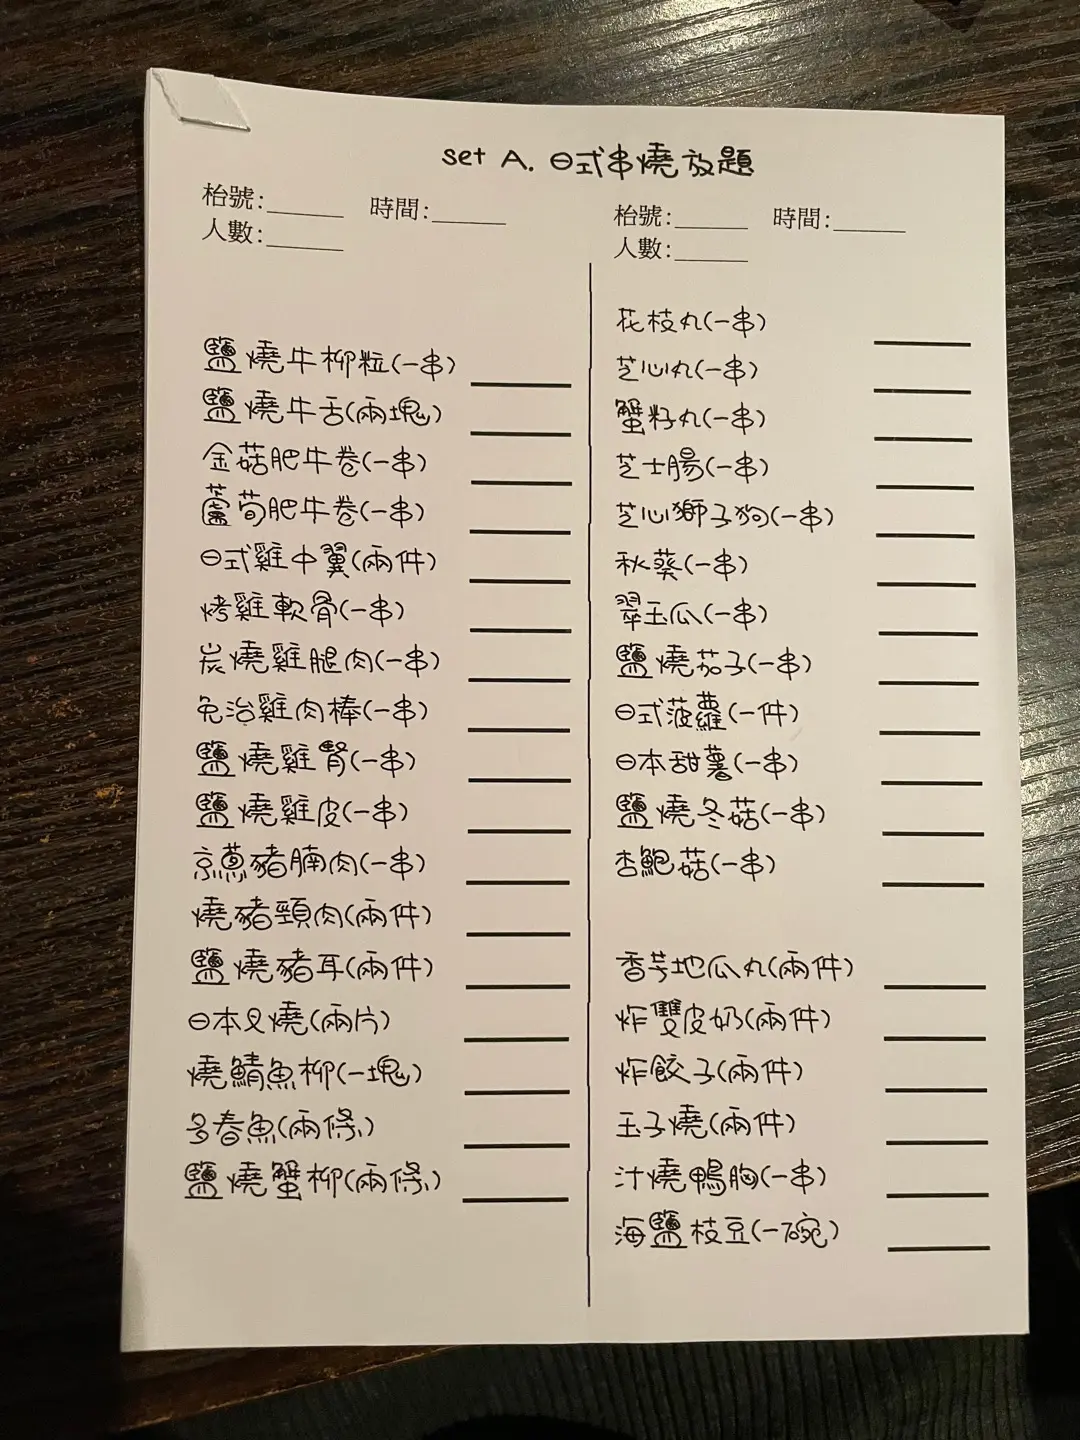 set A. 日式串燒放題
枱號:______ 時間:______
人數:______
鹽燒牛柳粒(一串)
鹽燒牛舌(兩塊)
金菇肥牛卷(一串)
蘆荀肥牛卷(一串)
日式雞中翼(兩件)
烤雞軟骨(一串)
炭燒雞腿肉(一串)
免治雞肉棒(一串)
鹽燒雞腎(一串)
鹽燒雞皮(一串)
京蔥豬腩肉(一串)
燒豬頸肉(兩件)
鹽燒豬耳(兩件)
日本叉燒(兩片)
燒鯖魚柳(一塊)
多春魚(兩條)
鹽燒蟹柳(兩條)
枱號:______ 時間:______
人數:______
花枝丸(一串)
芝心丸(一串)
蟹籽丸(一串)
芝士腸(一串)
芝心獅子狗(一串)
秋葵(一串)
翠玉瓜(一串)
鹽燒茄子(一串)
日式菠蘿(一件)
日本甜薯(一串)
鹽燒冬菇(一串)
杏鮑菇(一串)
香芋地瓜丸(兩件)
炸雙皮奶(兩件)
炸餃子(兩件)
玉子燒(兩件)
汁燒鴨胸(一串)
海鹽枝豆(一碗)